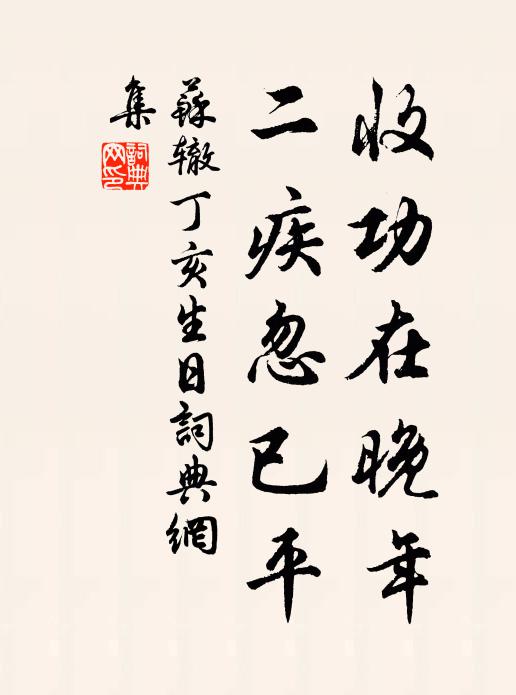 收功在晚年
二疾忽已平
蘇辙丁亥生日詞典網
集
詞典
网印